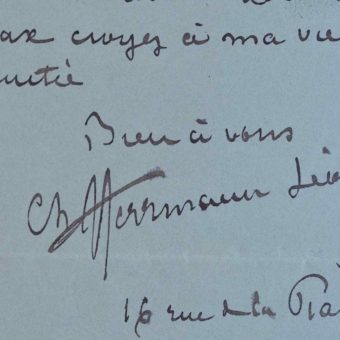 croyez à ma vie
Bien à vous
Ch Herrmann Léo
16 rue de la